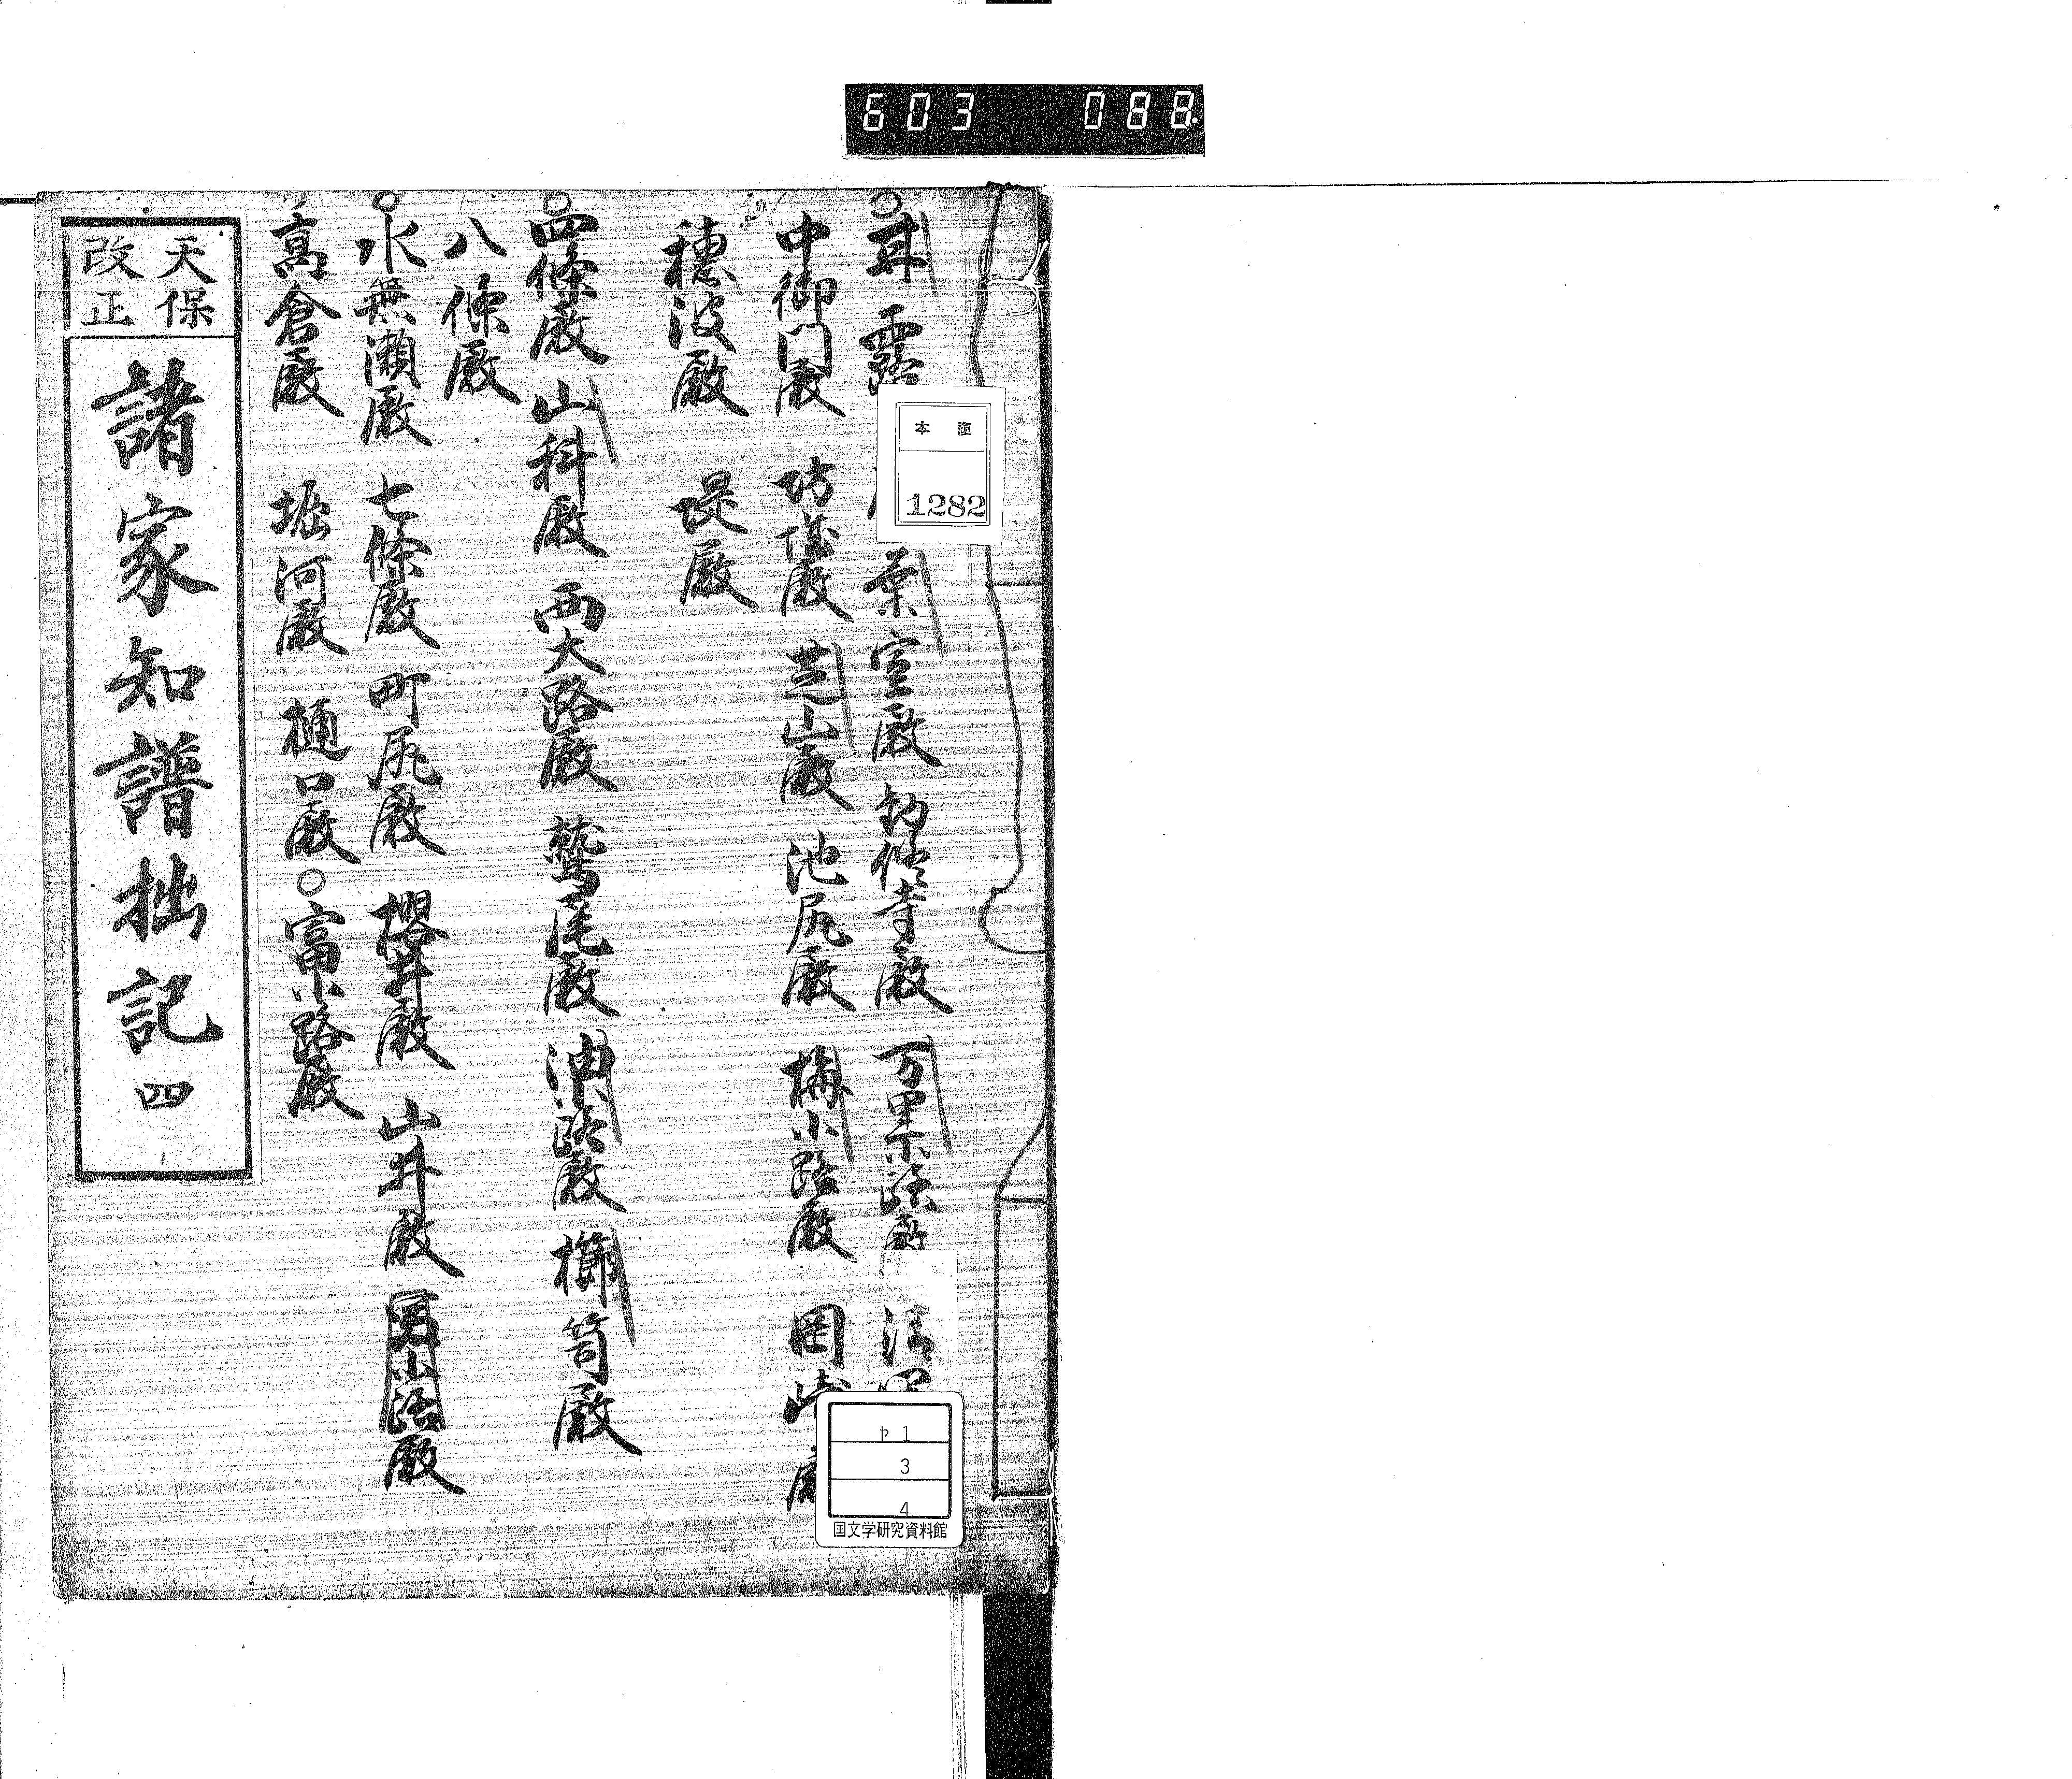 603 088.
○甘露 葉室殿 勧修寺殿 万里小路殿 清
中御門殿 坊城殿 芝山殿 池尻殿 梅小路殿 岡崎殿
穂波殿 堤殿
○四條殿 山科殿 西大路殿 鷲尾殿 油小路殿 櫛笥殿
八條殿
○水無瀬殿 七條殿 町尻殿 櫻井殿 山井殿 小路殿
高倉殿 堀河殿 樋口殿 ○富小路殿
天保
改正
諸家知譜拙記 四
複本
1282
ヤ1
3
4
国文学研究資料館